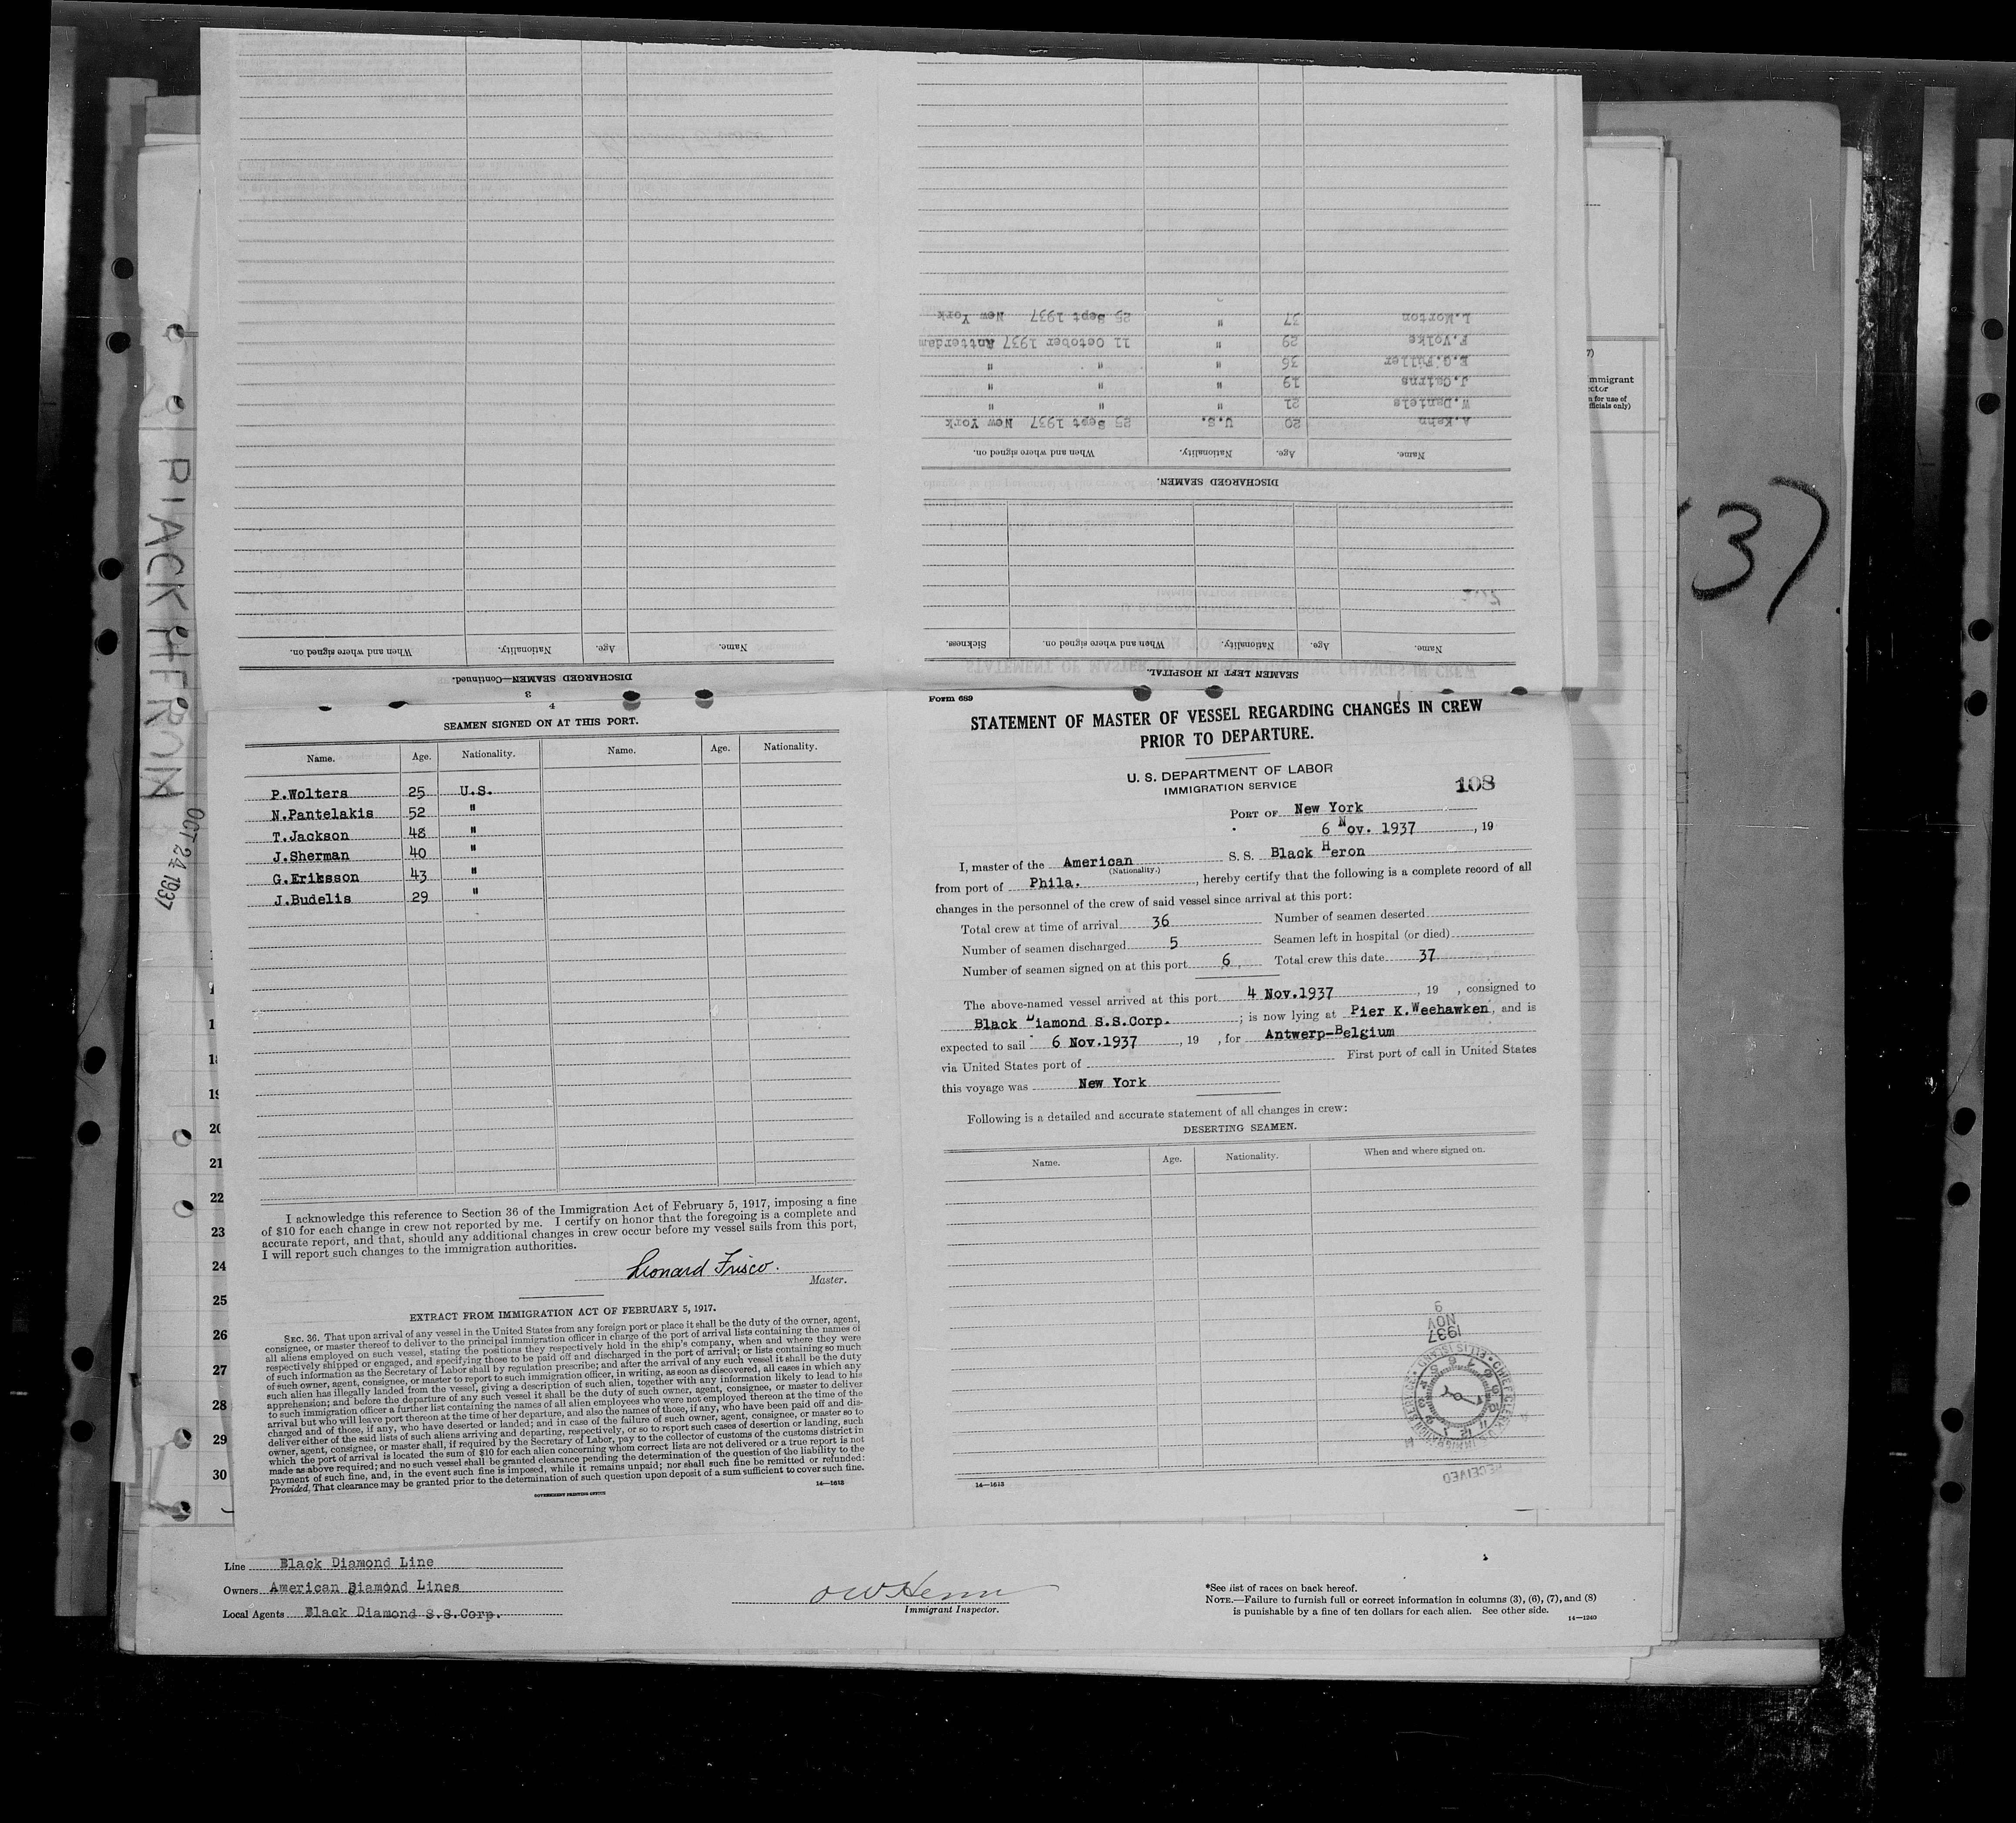 L.Morton 37 " 25 Sept 1937 New York
F.Volke 29 " 11 October 1937 Rotterdam
E.G.Fuller 36 " " "
J.Cairns 19 " " "
W.Daniels 21 " " "
A.Kehn 20 U.S. 25 Sept 1937 New York
Name. Age. Nationality. When and where signed on.
DISCHARGED SEAMEN.
Name. Age. Nationality. When and where signed on. Sickness.
SEAMEN LEFT IN HOSPITAL.
Name. Age. Nationality. When and where signed on.
DISCHARGED SEAMEN—Continued.
3
4
SEAMEN SIGNED ON AT THIS PORT.
Name. Age. Nationality. Name. Age. Nationality.
P.Wolters 25 U.S.
N.Pantelakis 52 "
T.Jackson 48 "
J.Sherman 40 "
G.Eriksson 43 "
J.Budelis 29 "
I acknowledge this reference to Section 36 of the Immigration Act of February 5, 1917, imposing a fine
of $10 for each change in crew not reported by me. I certify on honor that the foregoing is a complete and
accurate report, and that, should any additional changes in crew occur before my vessel sails from this port,
I will report such changes to the immigration authorities.
Leonard Frisco.
Master.
EXTRACT FROM IMMIGRATION ACT OF FEBRUARY 5, 1917.
SEC. 36. That upon arrival of any vessel in the United States from any foreign port or place it shall be the duty of the owner, agent,
consignee, or master thereof to deliver to the principal immigration officer in charge of the port of arrival lists containing the names of
all aliens employed on such vessel, stating the positions they respectively hold in the ship's company, when and where they were
respectively shipped or engaged, and specifying those to be paid off and discharged in the port of arrival; or lists containing so much
of such information as the Secretary of Labor shall by regulation prescribe; and after the arrival of any such vessel it shall be the duty
of such owner, agent, consignee, or master to report to such immigration officer, in writing, as soon as discovered, all cases in which any
such alien has illegally landed from the vessel, giving a description of such alien, together with any information likely to lead to his
apprehension; and before the departure of any such vessel it shall be the duty of such owner, agent, consignee, or master to deliver
to such immigration officer a further list containing the names of all alien employees who were not employed thereon at the time of the
arrival but who will leave port thereon at the time of her departure, and also the names of those, if any, who have been paid off and dis-
charged and of those, if any, who have deserted or landed; and in case of the failure of such owner, agent, consignee, or master so to
deliver either of the said lists of such aliens arriving and departing, respectively, or so to report such cases of desertion or landing, such
owner, agent, consignee, or master shall, if required by the Secretary of Labor, pay to the collector of customs of the customs district in
which the port of arrival is located the sum of $10 for each alien concerning whom correct lists are not delivered or a true report is not
made as above required; and no such vessel shall be granted clearance pending the determination of the question of the liability to the
payment of such fine, and, in the event such fine is imposed, while it remains unpaid; nor shall such fine be remitted or refunded:
Provided, That clearance may be granted prior to the determination of such question upon deposit of a sum sufficient to cover such fine.
GOVERNMENT PRINTING OFFICE
14—1613
Form 689
STATEMENT OF MASTER OF VESSEL REGARDING CHANGES IN CREW
PRIOR TO DEPARTURE.
U. S. DEPARTMENT OF LABOR
IMMIGRATION SERVICE
108
PORT OF New York
6 Nov. 1937, 19
I, master of the American S. S. Black Heron
(Nationality.)
from port of Phila., hereby certify that the following is a complete record of all
changes in the personnel of the crew of said vessel since arrival at this port:
Total crew at time of arrival 36 Number of seamen deserted
Number of seamen discharged 5 Seamen left in hospital (or died)
Number of seamen signed on at this port 6 Total crew this date 37
The above-named vessel arrived at this port 4 Nov.1937, 19 , consigned to
Black Diamond S.S.Corp. ; is now lying at Pier K.Weehawken, and is
expected to sail 6 Nov.1937, 19 , for Antwerp-Belgium
via United States port of First port of call in United States
this voyage was New York
Following is a detailed and accurate statement of all changes in crew:
DESERTING SEAMEN.
Name. Age. Nationality. When and where signed on.
1937
NOV
6
RECEIVED
14—1613
BLACK HERON
OCT 24 1937
37
7)
mmigrant
ctor
n for use of
fficials only)
19
20
21
22
23
24
25
26
27
28
29
30
Line Black Diamond Line
Owners American Diamond Lines
Local Agents Black Diamond S.S.Corp.
Immigrant Inspector.
*See list of races on back hereof.
NOTE.—Failure to furnish full or correct information in columns (3), (6), (7), and (8)
is punishable by a fine of ten dollars for each alien. See other side.
14—1240